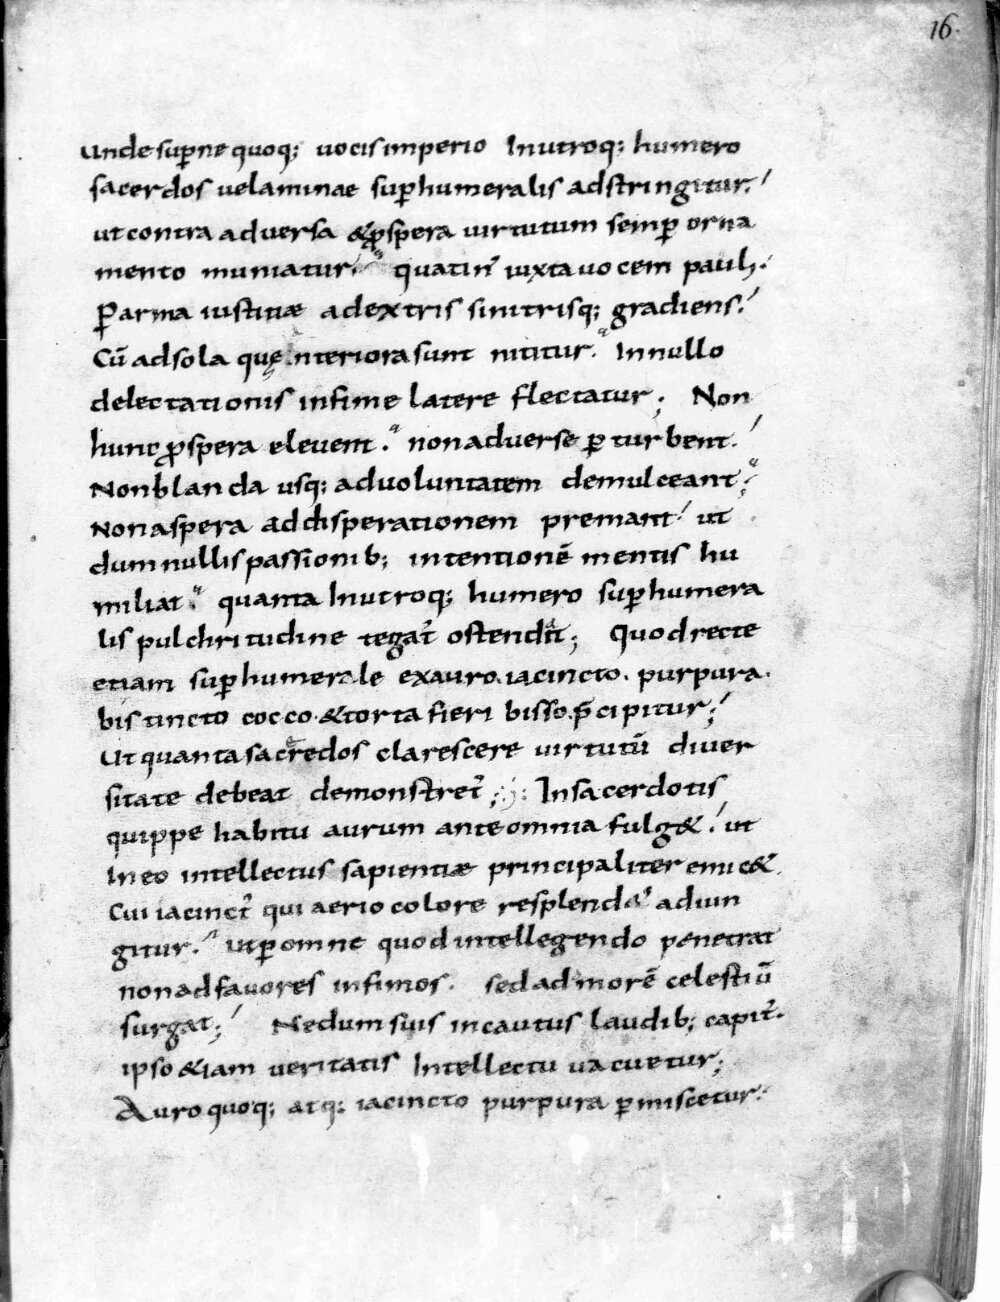 16.
Unde sup̄ne quoq; uocis imperio In utroq; humero
sacerdos uelaminae sup̄humeralis adstringitur.
ut contra aduersa & ꝓspera uirtutum semp̄ orna
mento muniatur. quatin᾽ iuxta uocem pauli.
P̄ arma iustitiæ adextris sinitrisq; gradiens.
Cū adsola quę interiora sunt nititur. In nullo
delectationis infime latere flectatur; Non
hunc ꝓspera eleuent. non aduerse p̄turbent.
Non blanda usq; aduoluntatem demulceant;
Non aspera addisperationem premant ut
dum nullis passionib; intentionē mentis hu
miliat quanta In utroq; humero sup̄humera
lis pulchritudine tegat᾽ ostendat; Quod recte
etiam sup̄humerale exauro. iacincto. purpura.
bis tincto cocco. & torta fieri bisso. p̄cipitur;
Ut quanta sacredos clarescere uirtutū diuer
sitate debeat demonstret᾽; In sacerdotis
quippe habitu aurum ante omnia fulg&. ut
In eo intellectus sapientiæ principaliter emic&.
Cui iacinct᾽ qui aerio colore resplend&᾽ adiun
gitur. ut p̄ omne quod intellegendo penetrat
non ad fauores infimos. sed ad morē celestiū
surgat; Ne dum suis incautus laudib; capit᾽.
ipso &iam ueritatis Intellectu uacuetur;
Auro quoq; atq; iacincto purpura p̄miscetur.